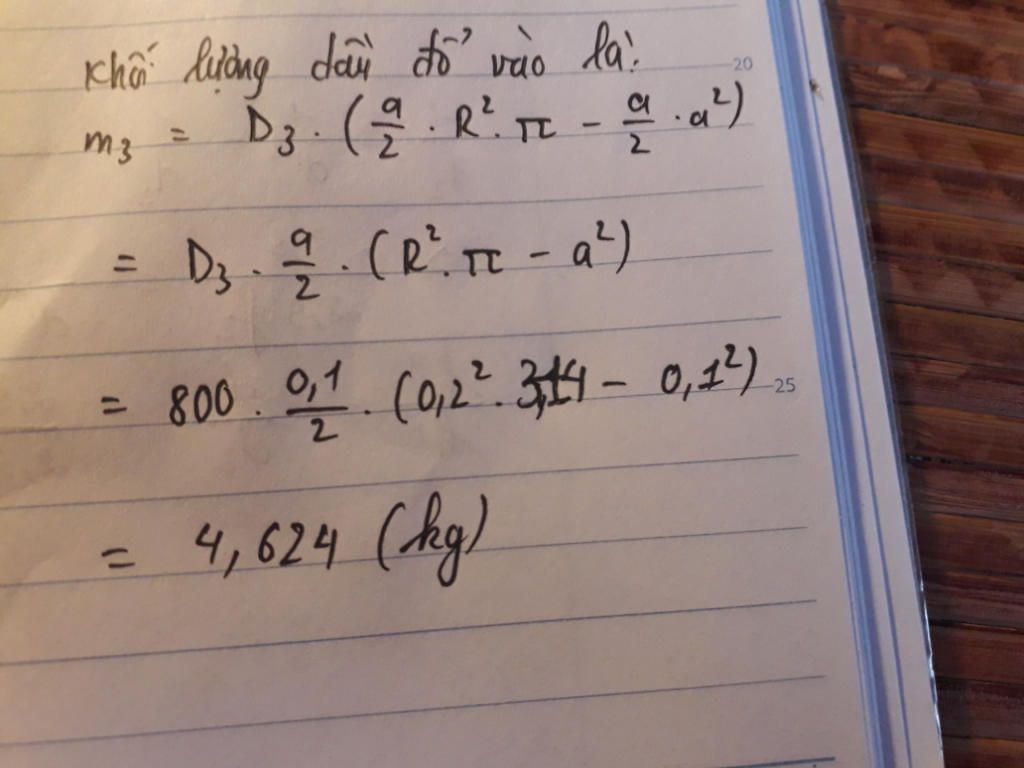 Khối lượng dầu đổ vào là:
20
m₃ = D₃ . (a/2 . R² . π - a/2 . a²)
= D₃ . a/2 . (R² . π - a²)
= 800 . 0,1/2 . (0,2² . 3,14 - 0,1²)
25
= 4,624 (kg)